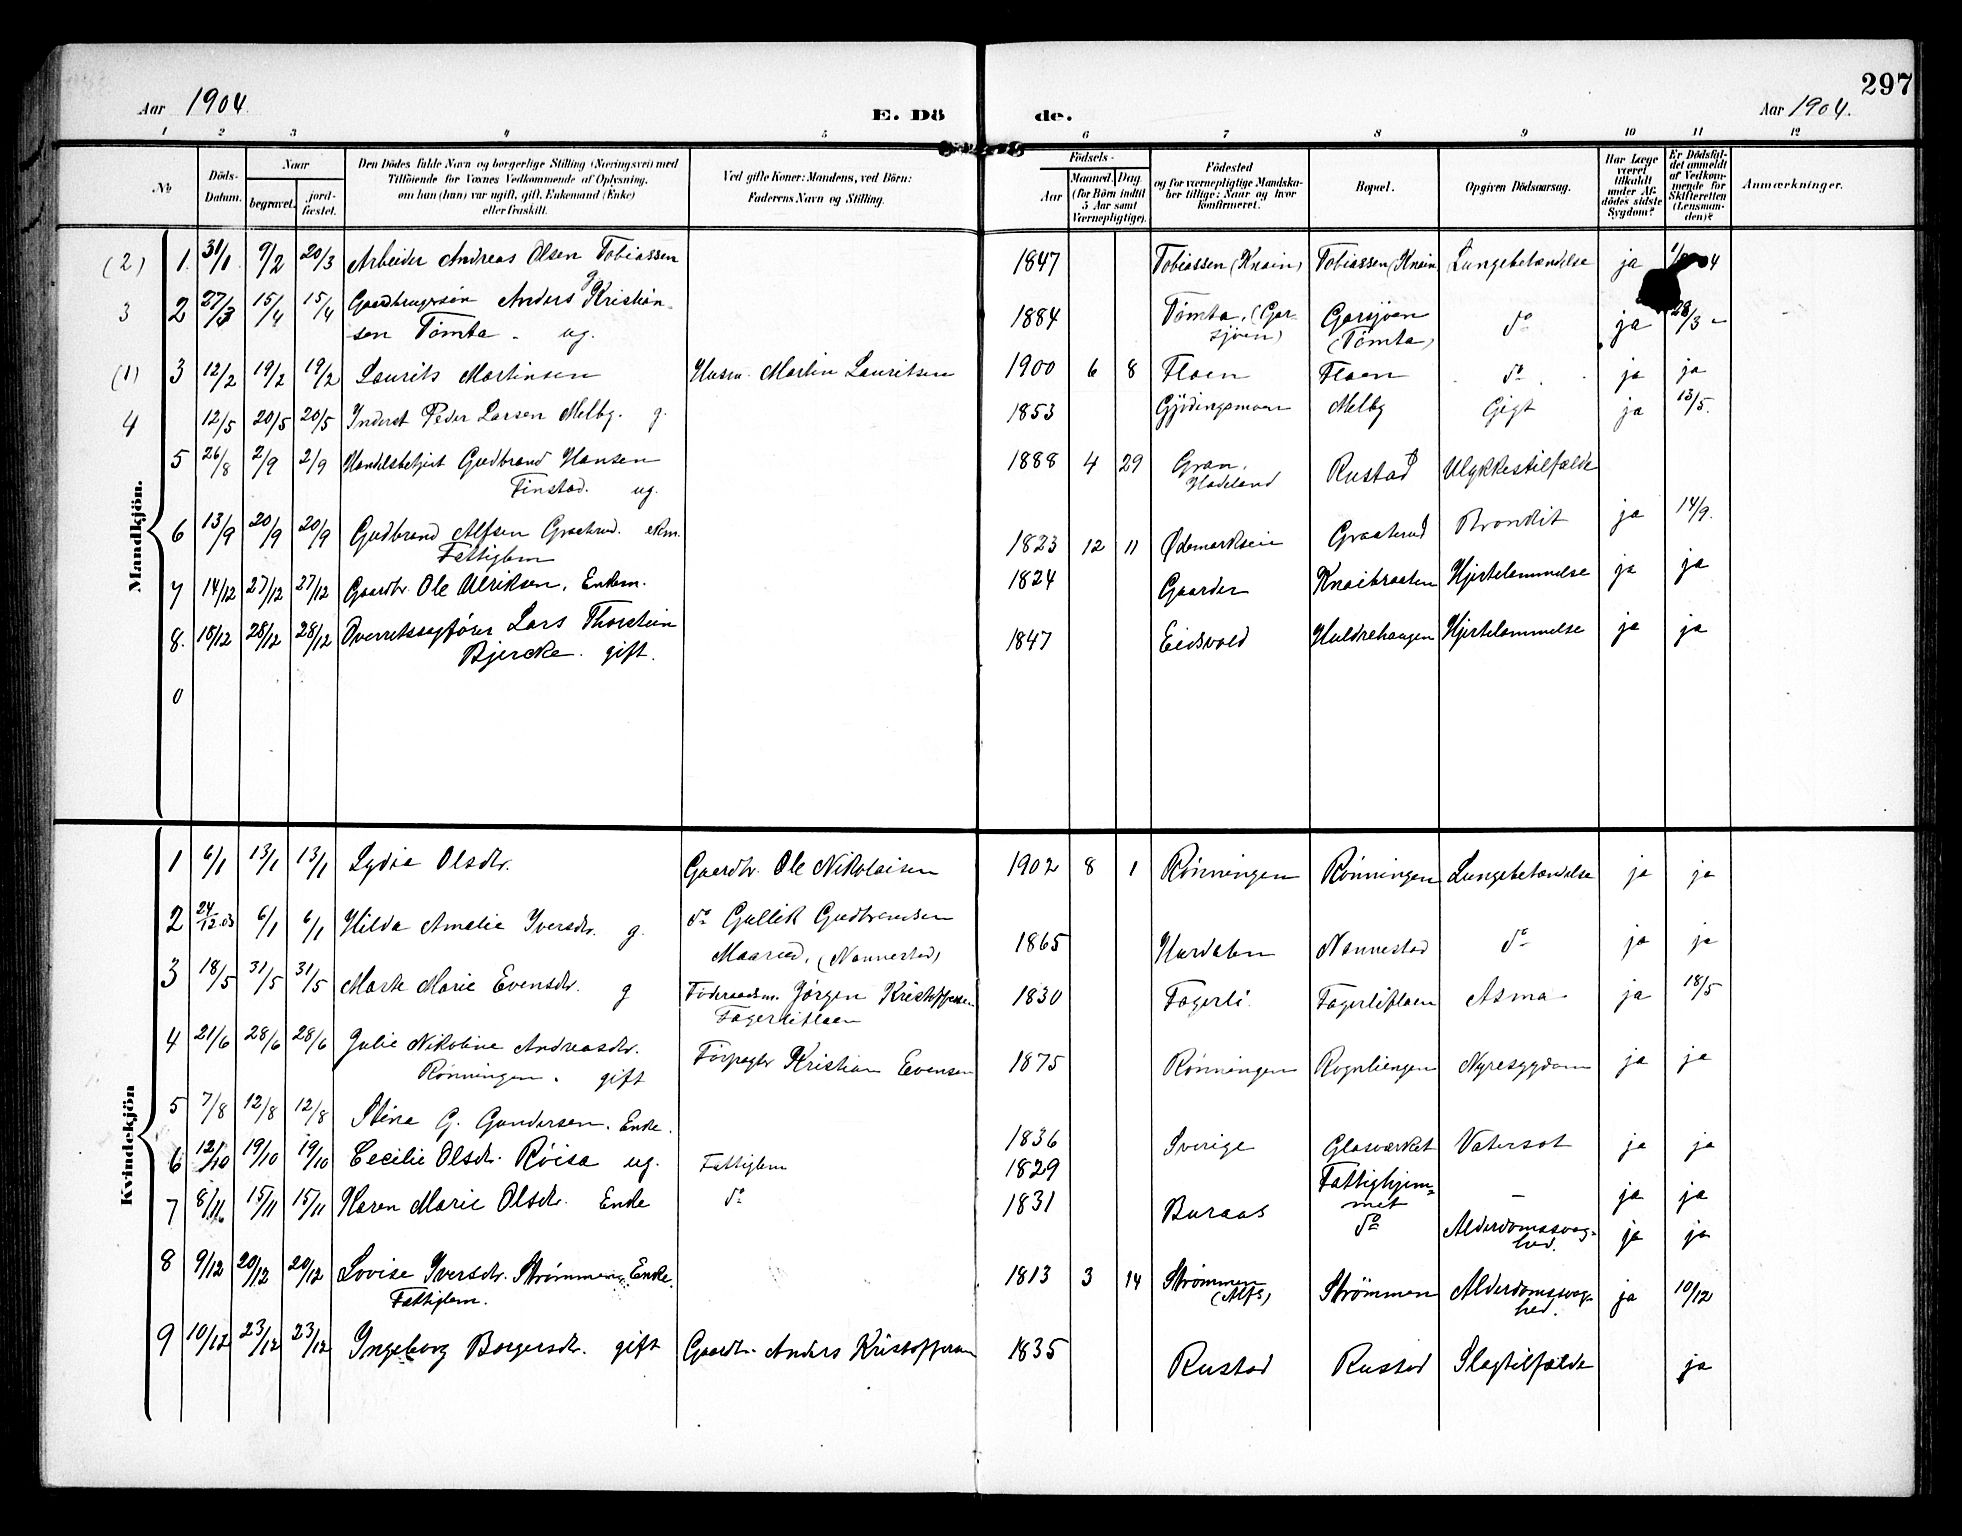 297
Aar 1904.
E. Dö
de.
Aar 1904.
1 2 3 4 5 6 7 8 9 10 11 12
№
Döds-
Datum.
Naar
begravet.
jord-
fæstet.
Den Dödes fulde Navn og borgerlige Stilling (Næringsvei) med
Tilföiende for Voxnes Vedkommende af Oplysning,
om han (hun) var ugift, gift, Enkemand (Enke)
eller fraskilt.
Ved gifte Koner: Mandens, ved Börn:
Faderens Navn og Stilling.
Födsels-
Aar
Maaned. Dag
(for Börn indtil
5 Aar samt
Værnepligtige).
Födested
og for værnepligtige Mandska-
ber tillige: Naar og hvor
konfirmeret.
Bopæl.
Opgiven Dödsaarsag.
Har Læge
været
tilkaldt
under Af-
dödes sidste
Sygdom?
Er Dödsfal-
det anmeldt
af Vedkom-
mende for
Skifteretten
(Lensman-
den)?
Anmærkninger.
Mandkjön.
(2) 1. 31/1 9/2 20/3 Arbeider Andreas Olsen Tobiassen g. 1847 Tobiassen (Knain) Tobiassen (Knain Lungebetændelse ja
3 2 27/3 15/4 15/4 Gaardbrugersøn Anders Kristian-
sen Tømta. ug. 1884 Tømta, (Gar-
sjøen) Garsjøen
(Tømta) do ja 28/3
(1) 3 12/2 19/2 19/2 Laurits Martinsen Husm. Martin Lauritsen 1900 6 8 Flaen Flaen do ja ja
4 12/5 20/5 20/5 Inderst Peder Larsen Melby. g. 1853 Gjødingsmoen Melby Gigt ja 13/5.
5 26/8 2/9 2/9 Handelsbetjent Gudbrand Hansen
Finstad. ug. 1888 4 29 Gran,
Hadeland Rustad Ulykkestilfælde
6 13/9 20/9 20/9 Gudbrand Alfsen Graaterud. ekm.
Fattiglem 1823 12 11 Ødemarkseie Graaterud Bronkit ja 14/9.
7 14/12 27/12 27/12 Gaardbr. Ole Ulriksen, Enkem. 1824 Gaarder Knaibraaten Hjertelammelse ja ja
8. 18/12 28/12 28/12 Overretssagfører Lars Thorstein
Bjercke. gift. 1847 Eidsvold Huldrehaugen Hjertelammelse ja ja
0
Kvindekjön
1 6/1 13/1 13/1 Lydia Olsdtr. Gaardbr. Ole Nikolaisen 1902 8 1 Rønningen Rønningen Lungebetændelse ja ja
2 24/12.03 6/1 6/1 Hilda Amalie Iversdtr. g. do Gullik Gudbrandsen
Maarud, (Nannestad) 1865 Hurdalen Nannestad do ja ja
3 18/5 31/5 31/5 Marte Marie Evensdtr. g Føderaadsm. Jørgen Kristoffersen
Fagerliflaen 1830 Fagerli Fagerliflaen Asma ja 18/5
4 21/6 28/6 28/6 Julie Nikoline Andreasdtr.
Rønningen. gift Forpagter Kristian Evensen 1875 Rønningen Rognliengen Nyresygdom ja ja
5 7/8 12/8 12/8 Stina G. Gundersen. Enke. 1836 Sverige Glasværket Vatersot ja ja
6 12/10 19/10 19/10 Cecilie Olsdtr. Røisa ug. Fattiglem 1829 Fattighjem-
met – ja ja
7 8/11 15/11 15/11 Karen Marie Olsdtr. Enke do 1831 Buraas do Alderdomssvag-
hed. ja ja
8 9/12 20/12 20/12 Lovise Iversdtr. Strømmen, Enke.
Fattiglem. 1813 3 14 Strømmen
(Alfs) Strømmen Alderdomssvag-
hed. ja 10/12
9 10/12 23/12 23/12 Ingeborg Borgersdtr. gift Gaardbr. Anders Kristoffersen 1835 Rustad Rustad Slagtilfælde ja